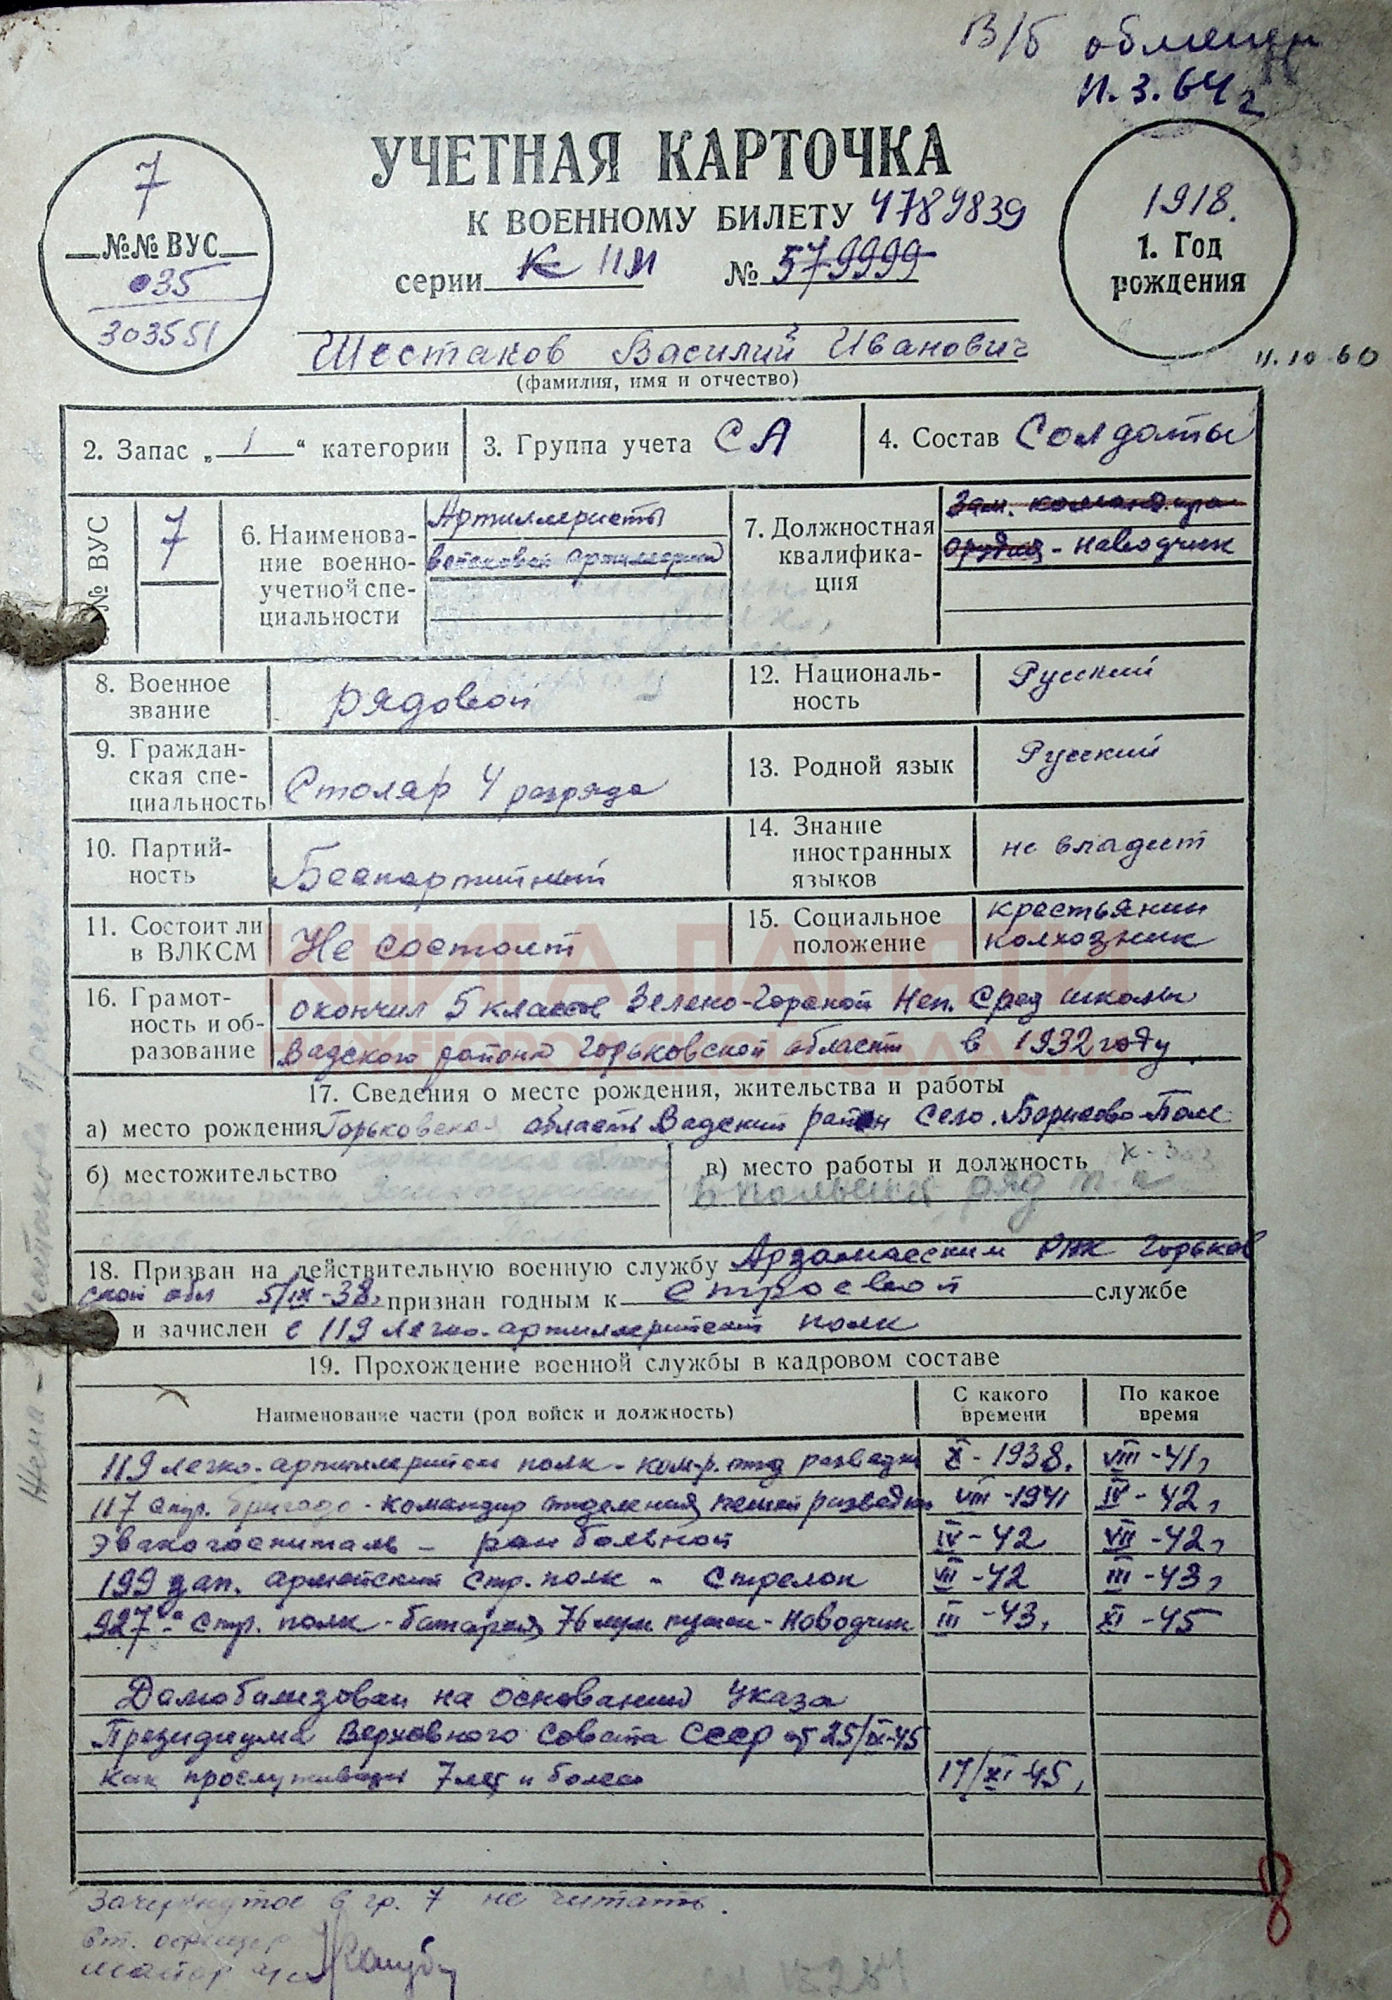 В/б обменен
11.3.64 г
УЧЕТНАЯ КАРТОЧКА
К ВОЕННОМУ БИЛЕТУ 4789839
серии К НМ № 579999
7
№№ ВУС
035
303551
1918.
1. Год
рождения
Шестаков Василий Иванович
(фамилия, имя и отчество)
11.10.60
2. Запас „ 1 “ категории
3. Группа учета СА
4. Состав Солдаты
№ ВУС
7
6. Наименова-
ние военно-
учетной спе-
циальности
Артиллеристы
войсковой артиллерии
7. Должностная
квалифика-
ция
Зам. командира
орудия - наводчик
8. Военное
звание
рядовой
12. Националь-
ность
Русский
9. Граждан-
ская спе-
циальность
Столяр 4 разряда
13. Родной язык
Русский
10. Партий-
ность
Беспартийный
14. Знание
иностранных
языков
не владеет
11. Состоит ли
в ВЛКСМ
Не состоит
15. Социальное
положение
крестьянин
колхозник
КНИГА ПАМЯТИ
НИЖЕГОРОДСКОЙ ОБЛАСТИ
16. Грамот-
ность и об-
разование
окончил 5 классов Зелено-Горской Неп. Сред школы
Вадского района Горьковской области в 1932 году.
17. Сведения о месте рождения, жительства и работы
а) место рождения Горьковская область Вадский район Село. Борисово-Поле
б) местожительство
в) место работы и должность
18. Призван на действительную военную службу Арзамасским РВК Горьков
ской обл 5/IX-38, признан годным к строевой службе
и зачислен в 119 легко-артиллерийский полк
19. Прохождение военной службы в кадровом составе
Наименование части (род войск и должность)
С какого
времени
По какое
время
119 легко-артиллерийск полк - ком-р. отд разведки X - 1938. VIII - 41,
117 стр. бригада - командир отделения пешей разведки VIII - 1941 IV - 42,
Эвакогоспиталь - ран больной IV - 42 VII - 42,
199 зап. армейский стр. полк - Стрелок VII - 42 III - 43,
927 - стр. полк - батарея 76 мм пушек - наводчик III - 43. XI - 45
Демобилизован на основании указа
Президиума Верховного Совета СССР от 25/IX-45
как прослуживший 7 лет и более 17/XI-45,
Зачеркнутое в гр. 7 не читать.
майор
8